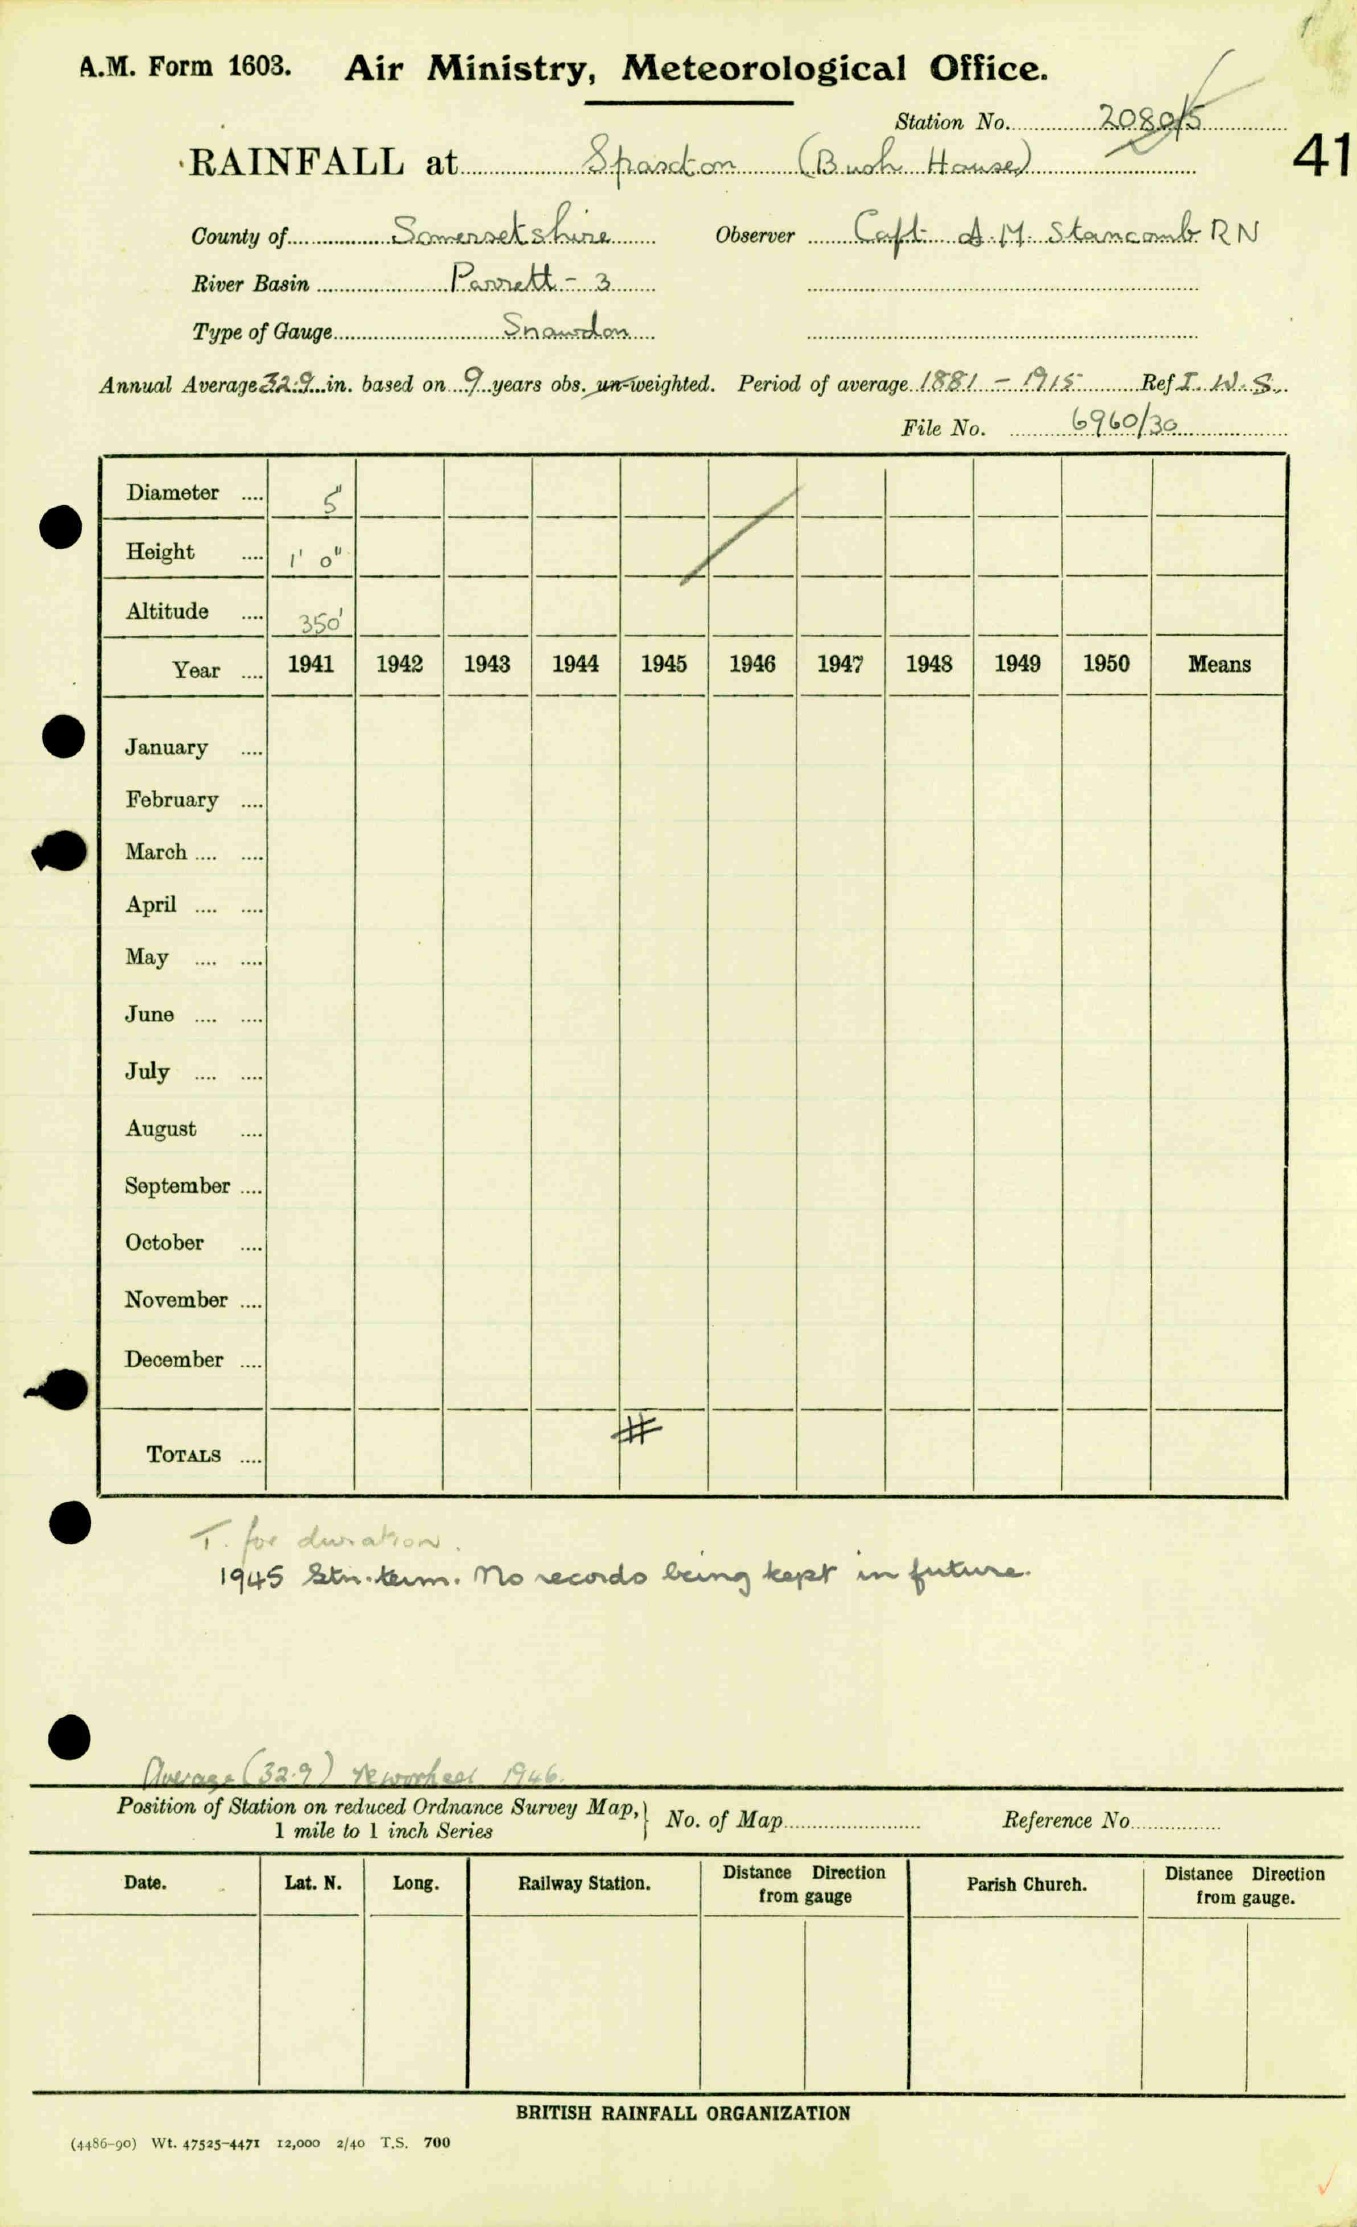 A.M. Form 1603. Air Ministry, Meteorological Office.
Station No. 2080/5
41
RAINFALL at Spaxton (Bush House)
County of Somersetshire Observer Capt. A.M. Stancomb RN
River Basin Parrett - 3
Type of Gauge Snowdon
Annual Average 32.9 in. based on 9 years obs. un-weighted. Period of average 1881 - 1915 Ref I. W. S.
File No. 6960/30
Diameter .... 5"
Height .... 1' 0"
Altitude .... 350'
Year .... 1941 1942 1943 1944 1945 1946 1947 1948 1949 1950 Means
January ....
February ....
March .... ....
April .... ....
May .... ....
June .... ....
July .... ....
August ....
September ....
October ....
November ....
December ....
TOTALS .... #
T. for duration.
1945 Stn. term. No records being kept in future.
Average (32.9) reworked 1946.
Position of Station on reduced Ordnance Survey Map, } No. of Map Reference No
1 mile to 1 inch Series
Date. Lat. N. Long. Railway Station. Distance Direction from gauge Parish Church. Distance Direction from gauge.
BRITISH RAINFALL ORGANIZATION
(4486-90) Wt. 47525-4471 12,000 2/40 T.S. 700